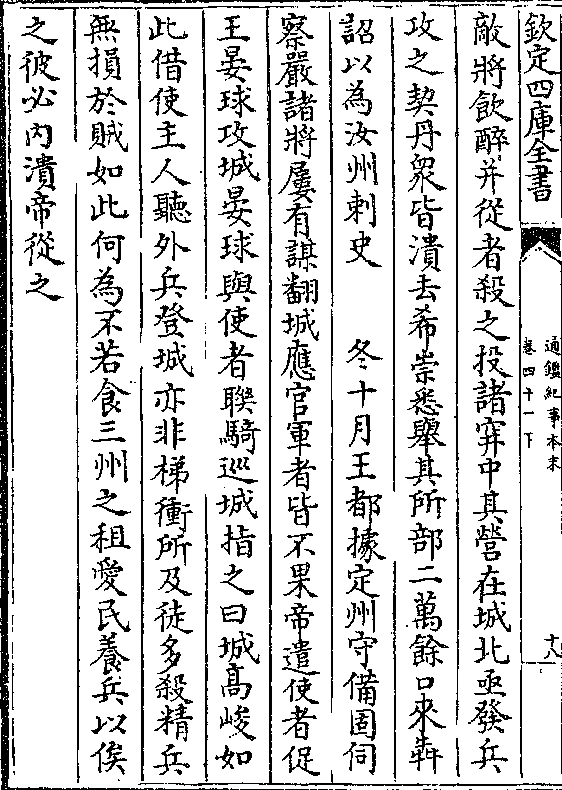 欽定四庫全書
通鑑紀事本末
卷四十一下
十八
敵將飲醉并從者殺之投諸穽中其營在城北亟發兵
攻之契丹衆皆潰去希崇悉舉其所部二萬餘口來奔
詔以為汝州刺史　冬十月王都據定州守備固伺
察嚴諸將屢有謀翻城應官軍者皆不果帝遣使者促
王晏球攻城晏球與使者聯騎巡城指之曰城高峻如
此借使主人聽外兵登城亦非梯衝所及徒多殺精兵
無損於賊如此何為不若食三州之租愛民養兵以俟
之彼必內潰帝從之